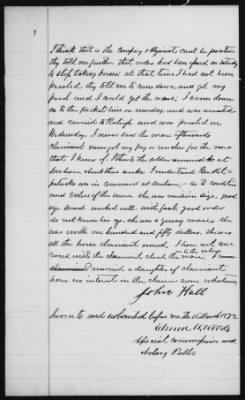 I think that is the company & Regiment cant be positive
they told me further that orders had been given on saturday
to stop taking horses: at that time I had not been
paroled, they told me to come down and get my
parol and I could get the mare; I came down
to the picket line on monday, and was arrested
and carried to Raleigh and was paroled on
Wednesday. I never saw the mare afterwards
Claimant never got any pay or voucher for the mare
that I know of. I think the soldiers remained at
Durham about three weeks. I understood Genl
patricks was in command at Durham,— as to condition
and value of the mare. She was medium size, good
age. and worked well with both, good order
do not know her age. she was a young mare. she
was worth one hundred and fifty dollars. she was
all the horse claimant owned, I have not con
versed with the claimant about the mare. I
married a daughter of claimant
have no interest in the claim now whatever
John Hall
sworn to and subscribed before me the March 1872
special commissioner and
Notary Public